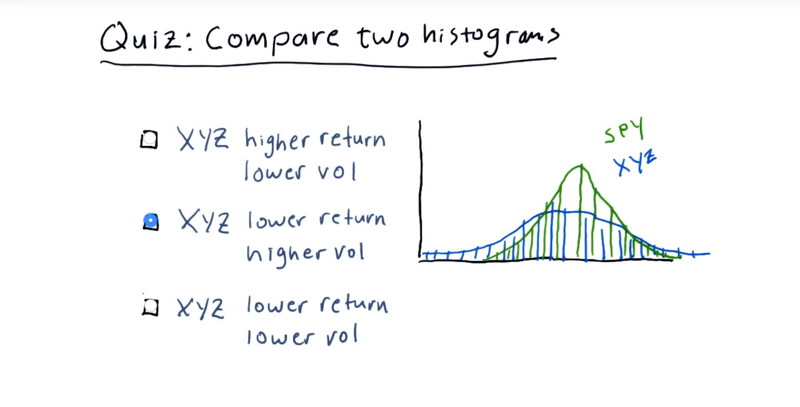 Quiz: Compare two histograms
XYZ higher return
lower vol
XYZ lower return
higher vol
XYZ lower return
lower vol
SPY
XYZ